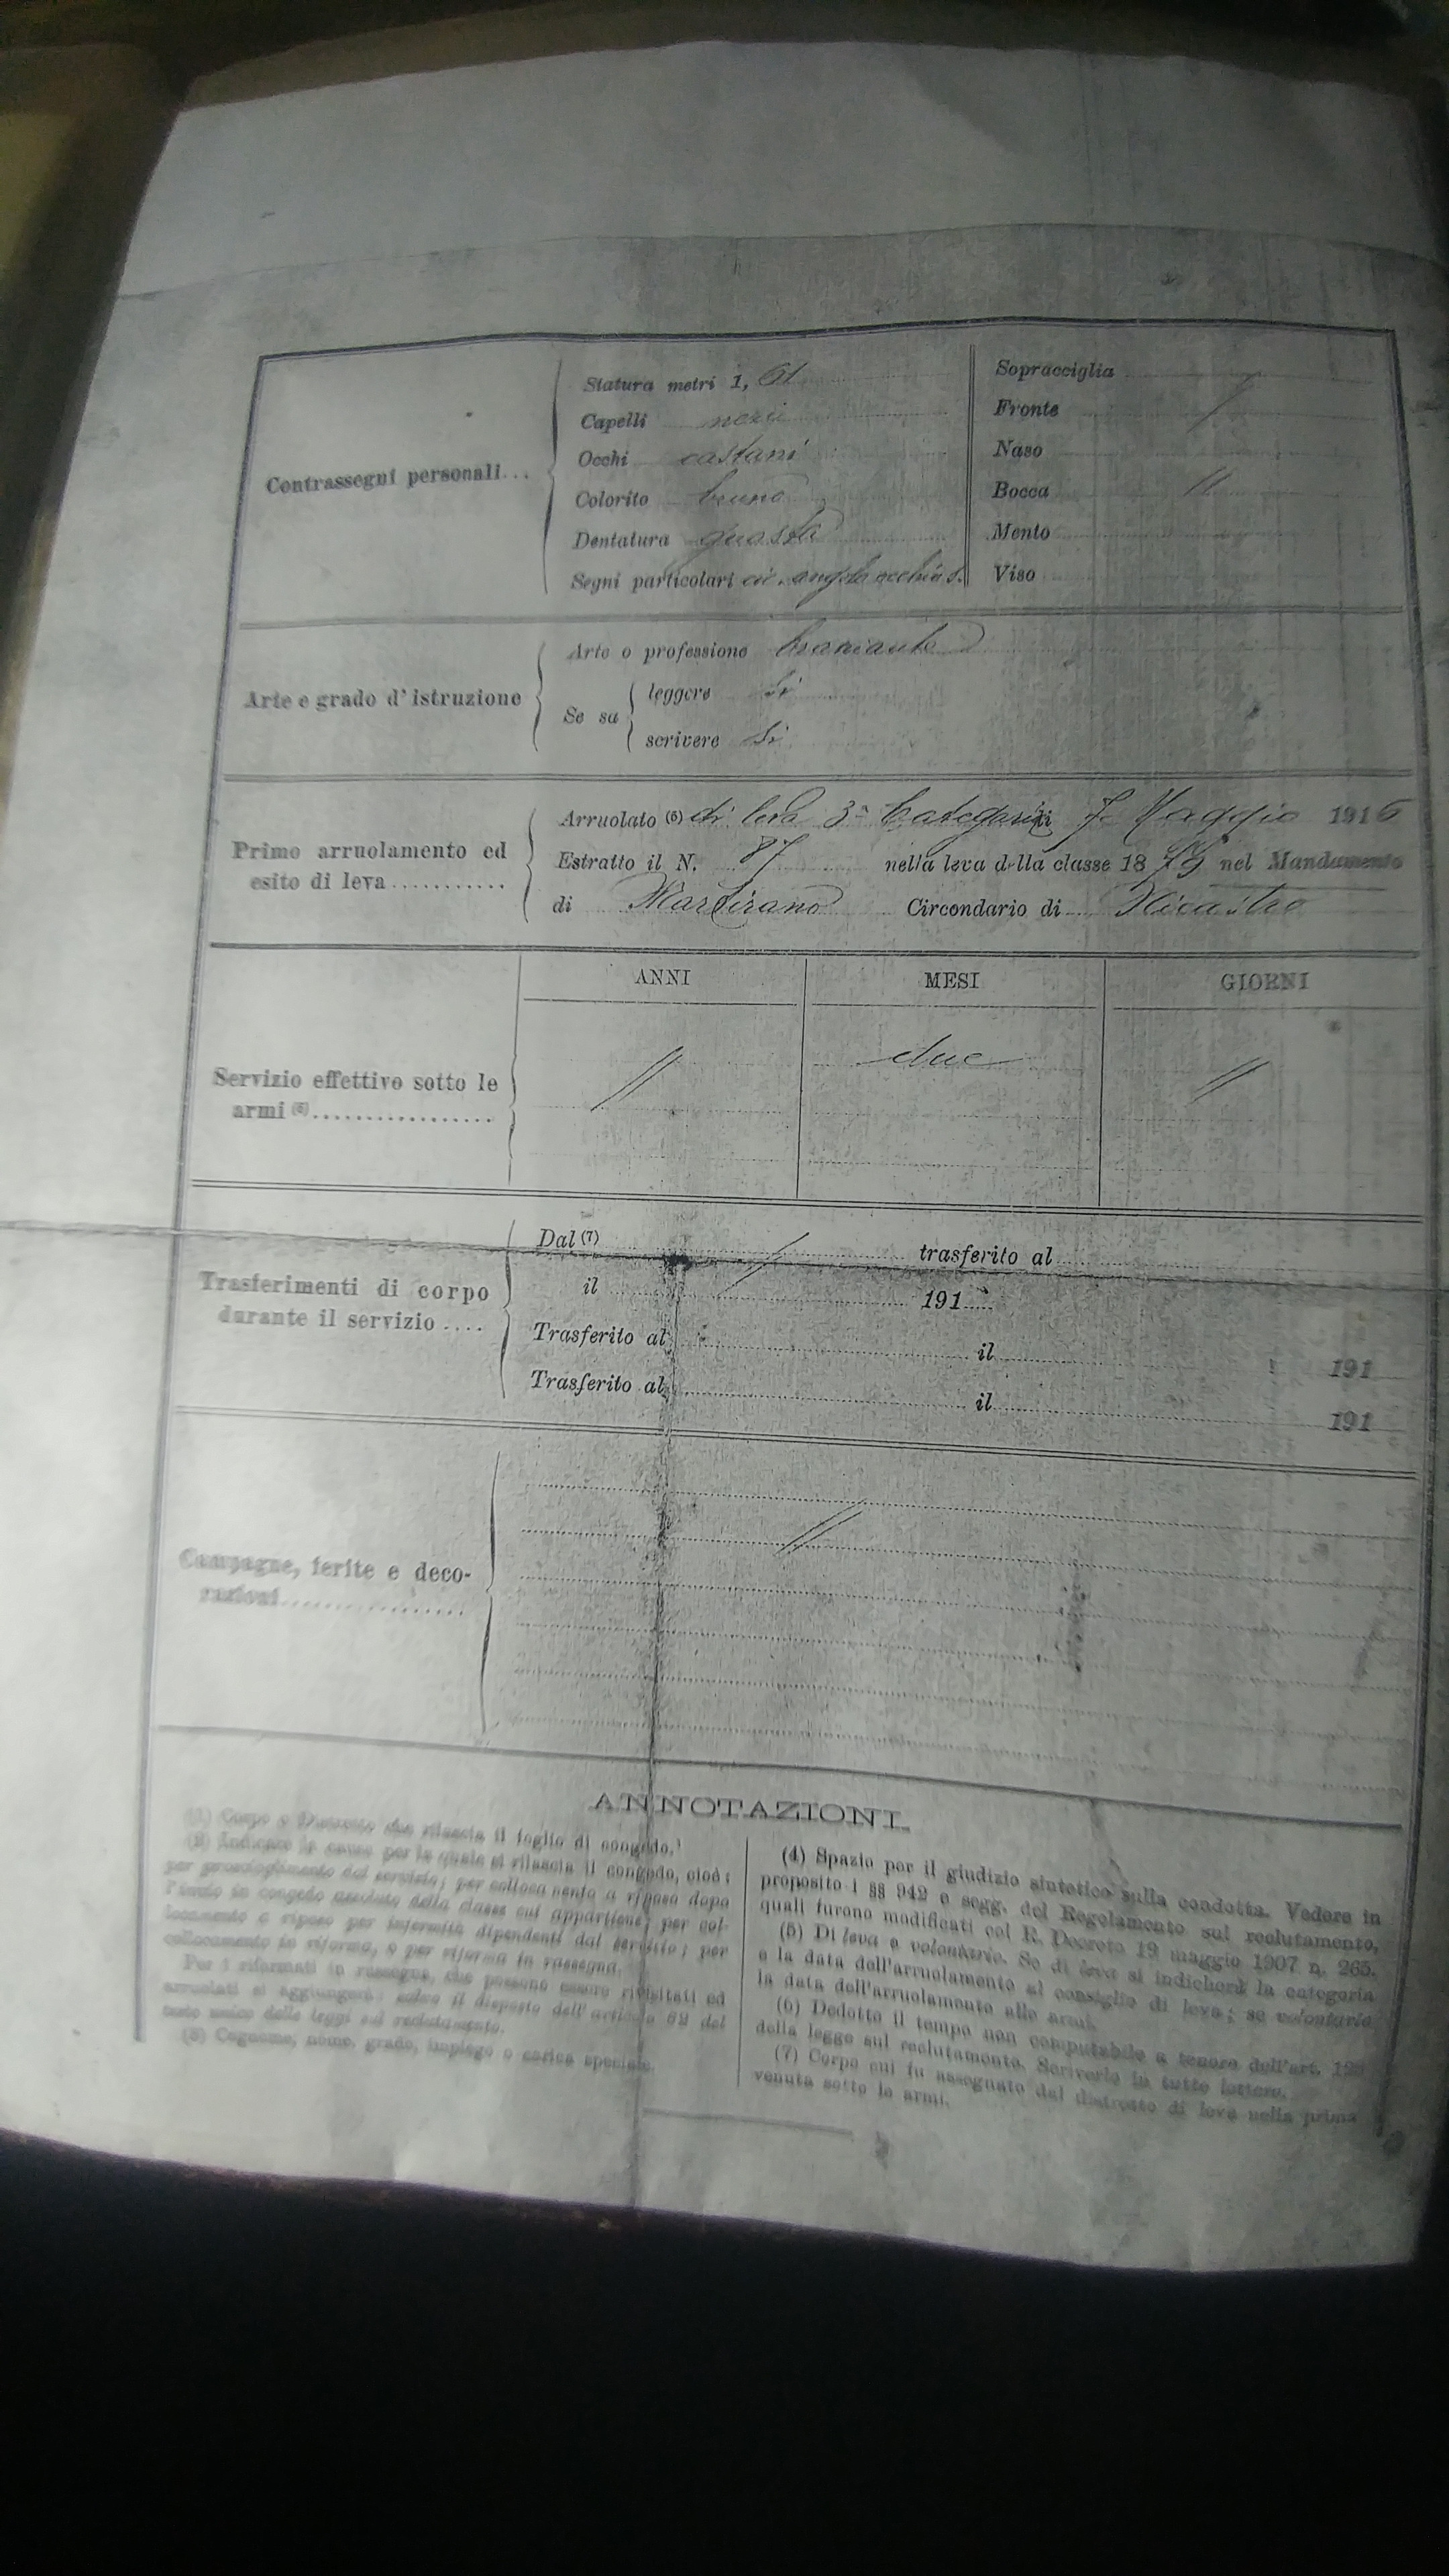 Contrassegni personali...
Statura metri 1, 61
Capelli neri
Occhi castani
Colorito bruno
Dentatura guasta
Segni particolari cic. angolo occhio s.
Sopracciglia
Fronte /
Naso
Bocca //
Mento
Viso
Arte e grado d'istruzione
Arte o professione braciante
Se sa
leggere Si
scrivere Si
Primo arruolamento ed
esito di leva...........
Arruolato (5) di leva 3ª Categoria Maggio 1916
Estratto il N. 87 nella leva della classe 18 nel Mandamento
di Martirano Circondario di Nicastro
ANNI MESI GIORNI
Servizio effettivo sotto le
armi (6)..................
// due //
Trasferimenti di corpo
durante il servizio ....
Dal (7) // trasferito al
il 191
Trasferito al il 191
Trasferito al il 191
Campagne, ferite e deco-
razioni..................
//
ANNOTAZIONI.
(1) Corpo o Distretto che rilascia il foglio di congedo.
(2) Indicare la causa per la quale si rilascia il congedo, cioè:
per proscioglimento dal servizio; per collocamento a riposo dopo
l'invio in congedo assoluto della classe cui appartiene; per col-
locamento a riposo per infermità dipendenti dal servizio; per
collocamento in riforma, o per riforma in rassegna.
Per i riformati in rassegna, che possono essere rivisitati ed
arruolati si aggiungerà: salvo il disposto dell'articolo 82 del
testo unico delle leggi sul reclutamento.
(3) Cognome, nome, grado, impiego o carica speciale.
(4) Spazio per il giudizio sintetico sulla condotta. Vedere in
proposito i §§ 942 e segg. del Regolamento sul reclutamento,
quali furono modificati col R. Decreto 19 maggio 1907 n. 265.
(5) Di leva o volontario. Se di leva si indicherà la categoria
e la data dell'arruolamento al consiglio di leva; se volontario
la data dell'arruolamento alle armi.
(6) Dedotto il tempo non computabile a tenore dell'art.
della legge sul reclutamento. Scriverlo in tutte lettere.
(7) Corpo cui fu assegnato dal distretto di leva nella prima
venuta sotto le armi.